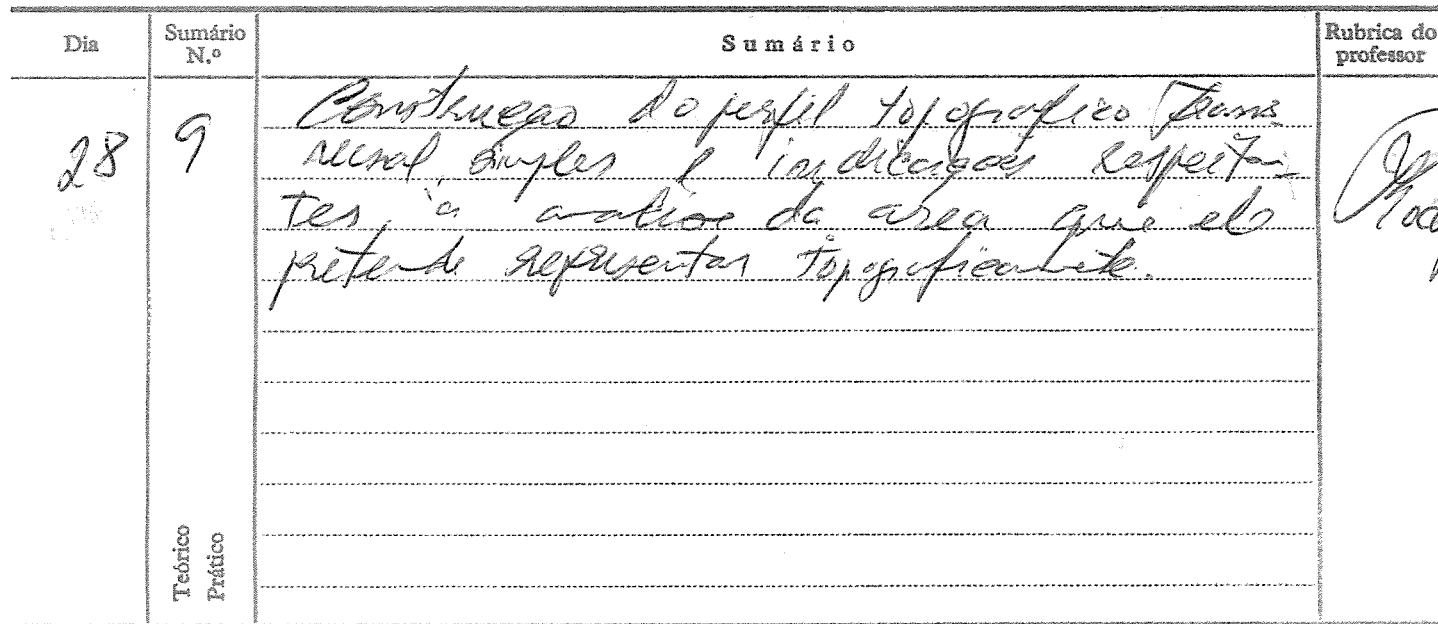 Dia
Sumário
N.º
Sumário
Rubrica do
professor
28
9
Construçao do perfil topografico trans
versal simples e indicações respeitan-
tes à analise da area que ele
pretende representar topograficamente.
Teórico
Prático